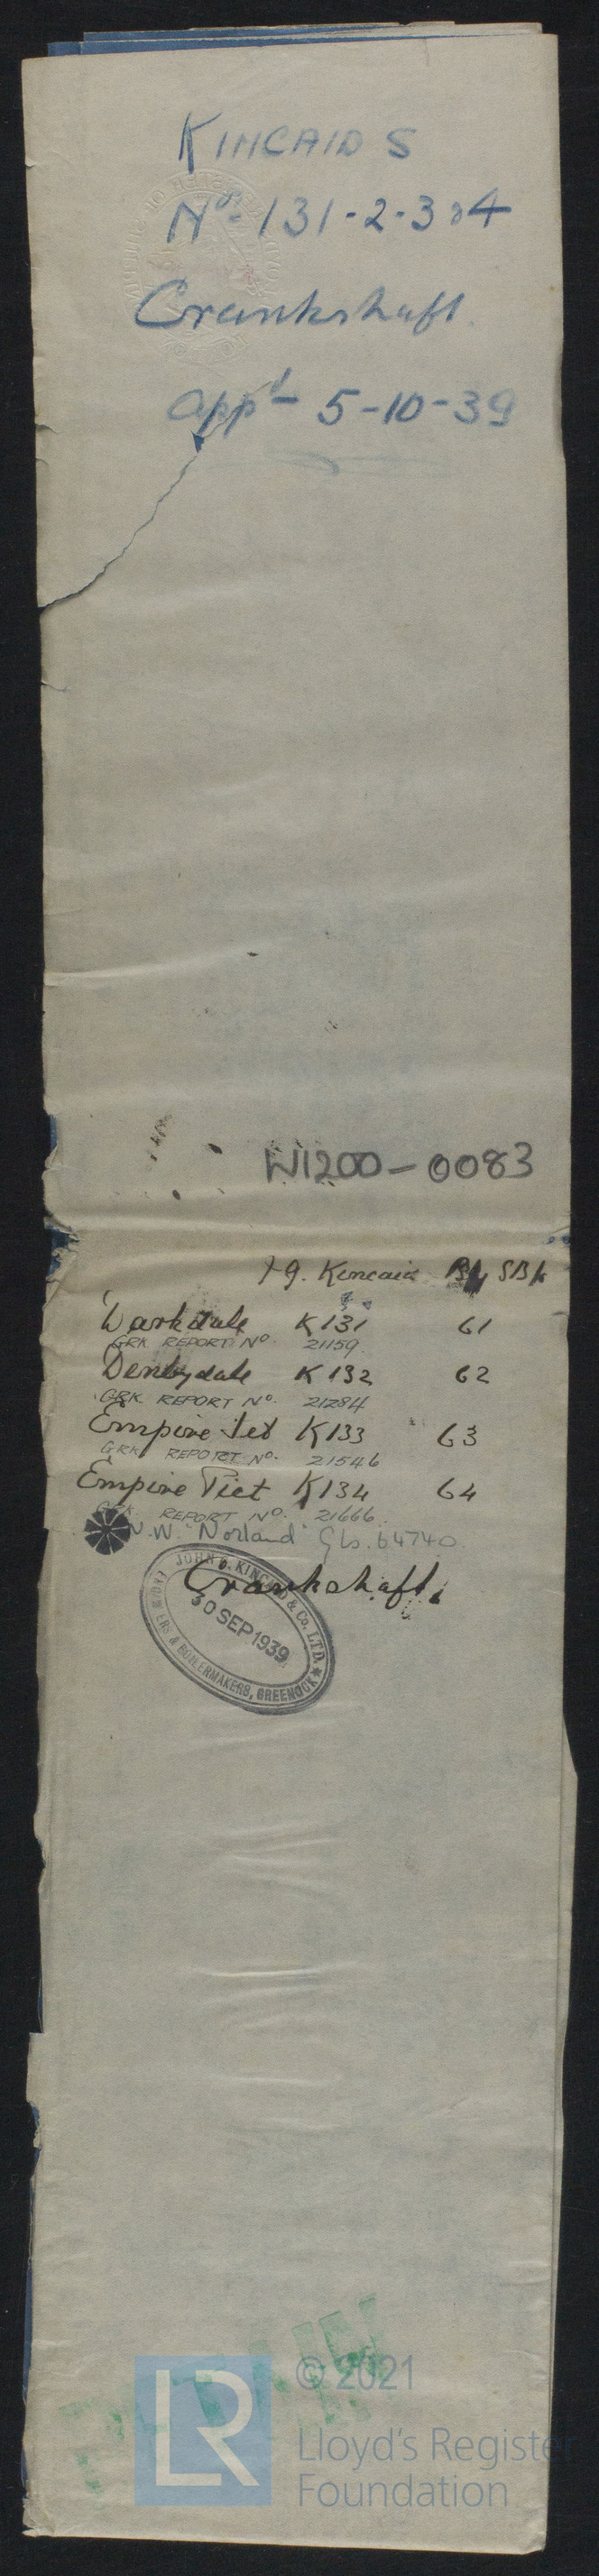 KINCAIDS
No. 131-2-3 & 4
Crankshaft.
App'd 5-10-39
W1200-0083
J.G. Kincaid
Warkdale K131 61
GRK REPORT No. 21159
Denbydale K132 62
GRK REPORT No. 21284
Empire K133 63
GRK REPORT No. 21546
Empire Pict K134 64
GRK REPORT No. 21666
N.W. "Norland" Gls. 64740
Crankshaft.
JOHN G. KINCAID & Co. LTD.
30 SEP 1939
& BOILERMAKERS, GREENOCK
LR
© 2021
Lloyd's Register
Foundation